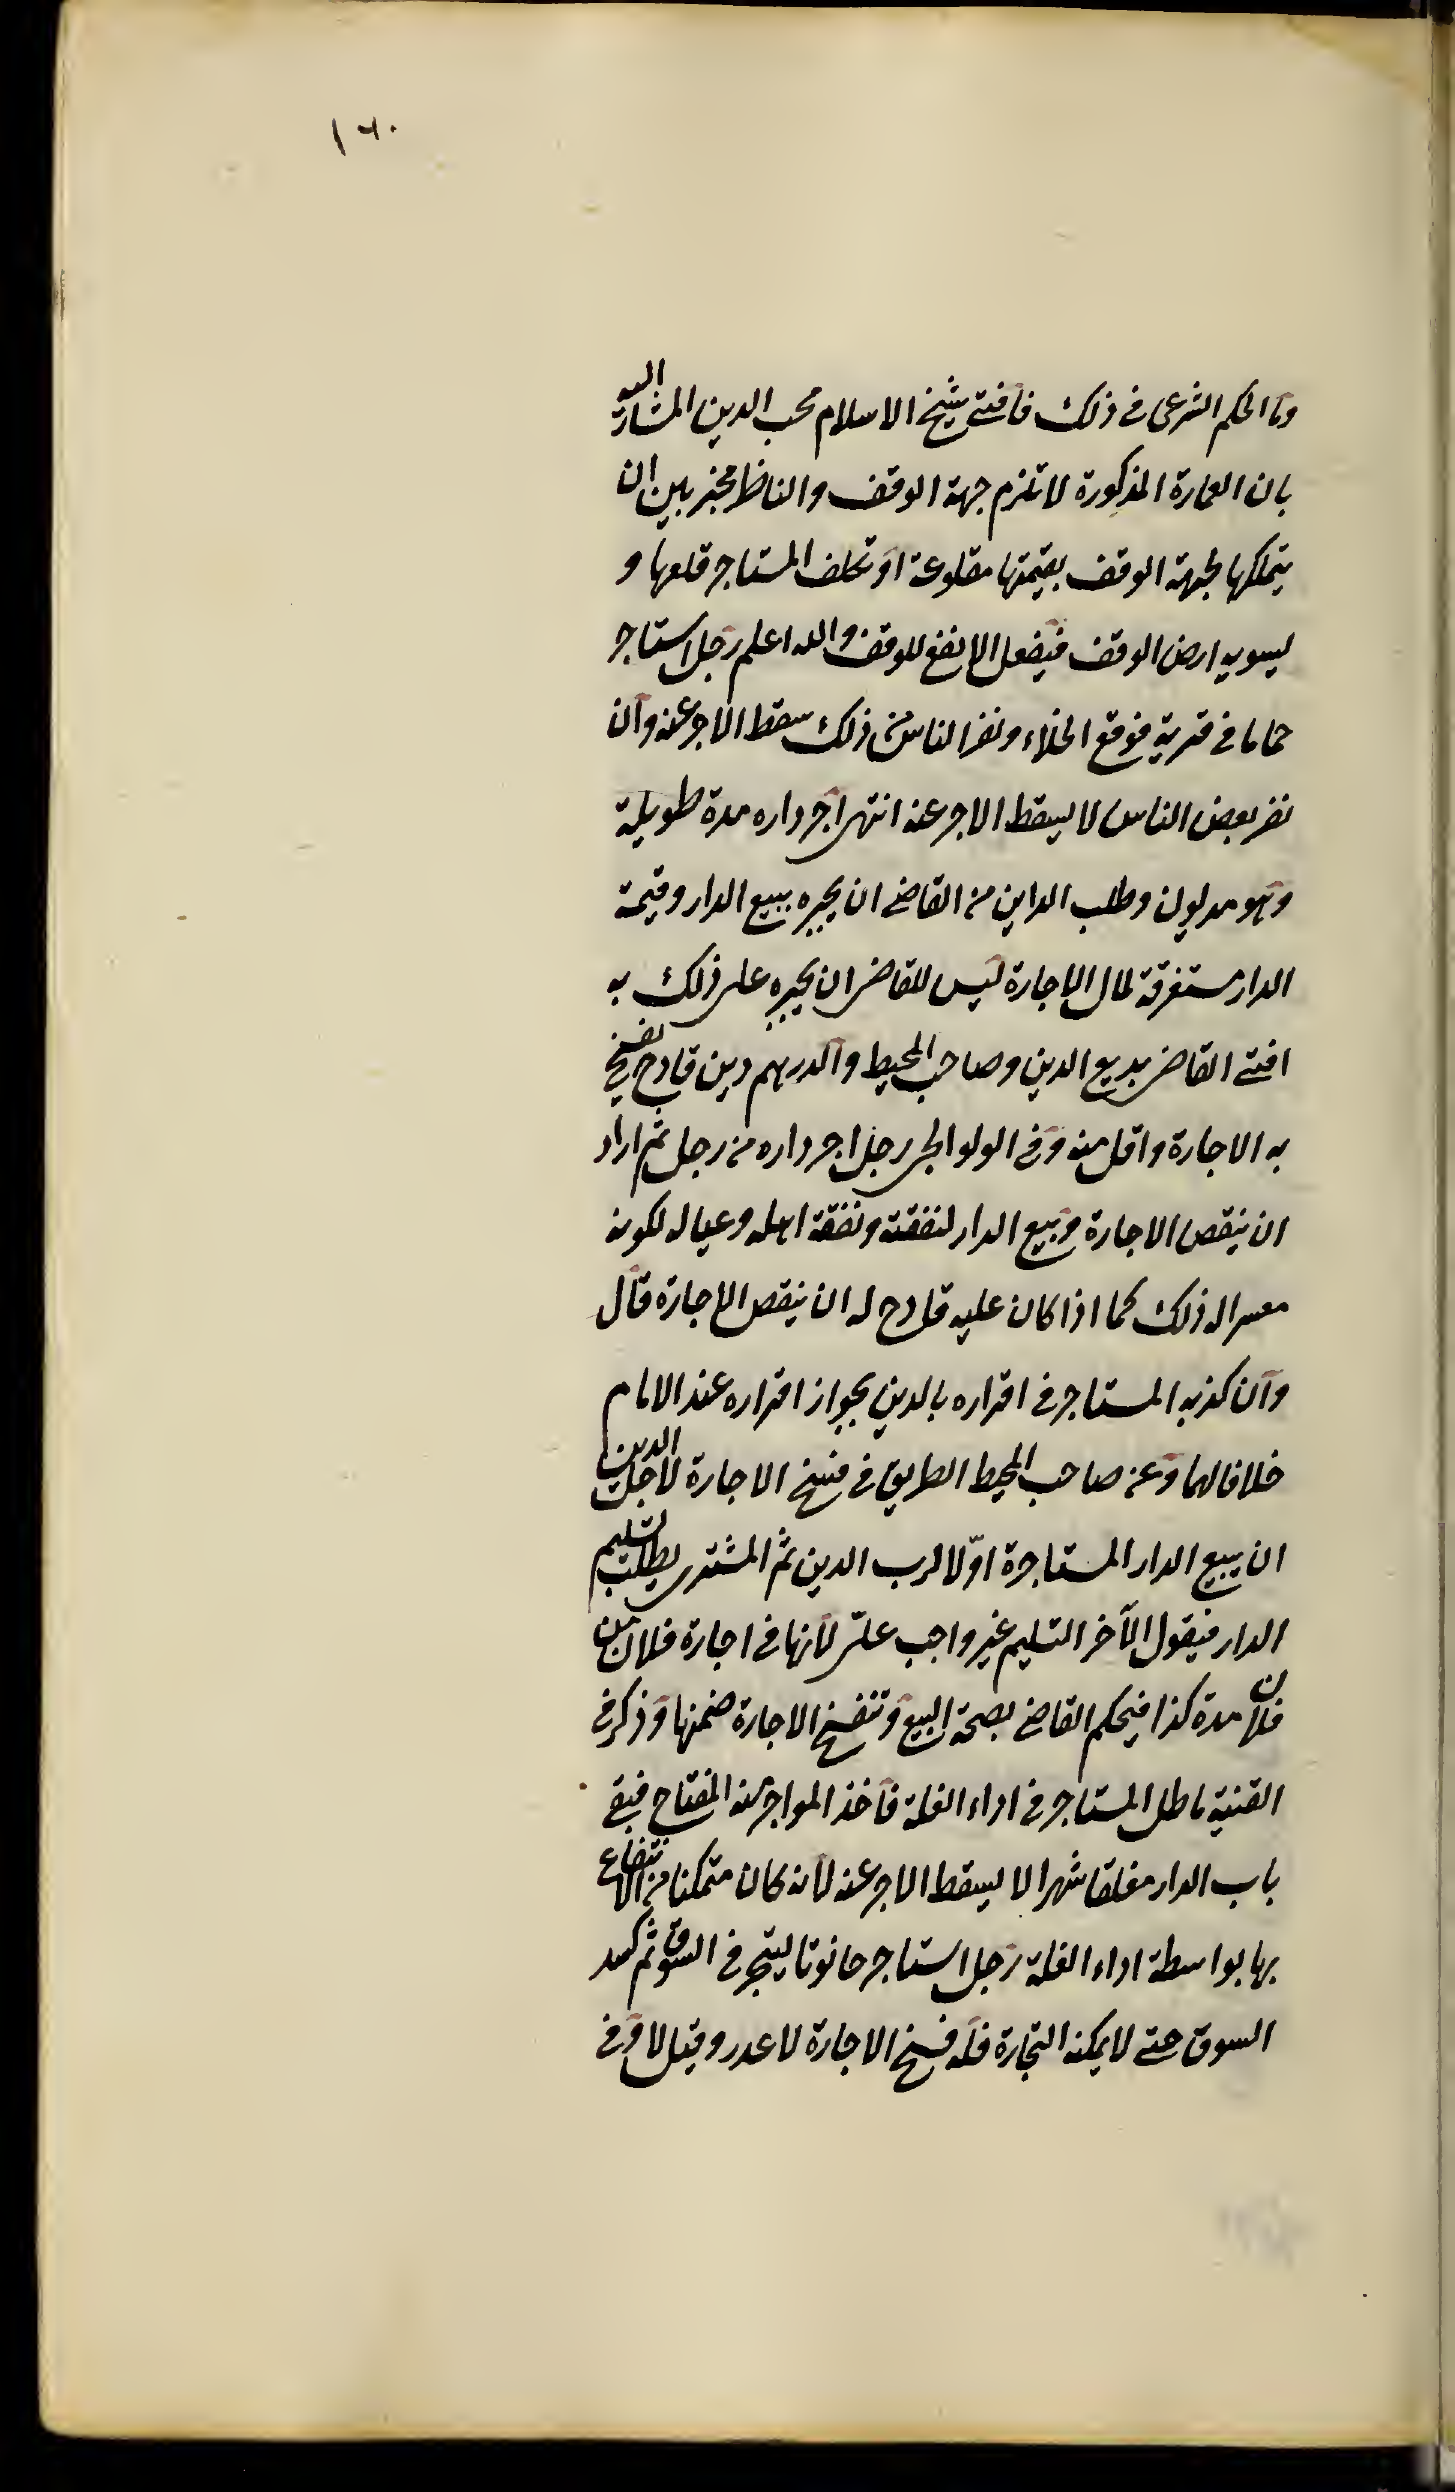 ١٦٠
وما الحكم الشرعى فى ذلك فافتى شيخ الاسلام محب الدين المشار اليه
بان العمارة المذكورة لا تلزم جهة الوقف والناظر مخير بين ان
يتملكها لجهة الوقف بقيمتها مقلوعة او تكلف المستاجر قلعها و
يسويه ارض الوقف فيفعل الانفع للوقف والله اعلم رجل استاجر
حماما فى قرية فوقع الخلاء ونفر الناس من ذلك سقط الاجر عنه وان
نفر بعض الناس لا يسقط الاجر عنه انتهى اجر داره مدة طويلة
وهو مديون وطلب الداين من القاضى ان يجبره ببيع الدار وقيمة
الدار مستغرقة لمال الاجارة ليس للقاضى ان يجبره على ذلك به
افتى القاضى بديع الدين وصاحب المحيط والدرهم دين قادح تفسخ
به الاجارة واقل منه وفى الولوالجى رجل اجر داره من رجل ثم اراد
ان ينقص الاجارة ويبيع الدار لنفقته ونفقة اهله وعياله لكونه
معسرا له ذلك كما اذا كان عليه قادح له ان ينقص الاجارة قال
وان كذبه المستاجر فى اقراره بالدين بجواز اقراره عند الامام
خلافا لهما وعن صاحب المحيط الطريق فى فسخ الاجارة لاجل الدين
ان يبيع الدار المستاجرة اوّلا لرب الدين ثم المشترى يطلب تسليم
الدار فيقول الآخر التسليم غير واجب علىّ لأنها فى اجارة فلان من
فلان مدة كذا فيحكم القاضى بصحة البيع وتنفسخ الاجارة ضمنها وذكر فى
القنية ماطل المستاجر فى اداء الغلة فاخذ المواجر منه المفتاح فبقى
باب الدار مغلقا شهرا لا يسقط الاجر عنه لانه كان متمكنا من الانتفاع
بها بواسطة اداء الغلة رجل استاجر حانوتا ليتجر فى السوق ثم كسد
السوق حتى لا يمكنه التجارة فله فسخ الاجارة لا عدر وقيل لا وفى